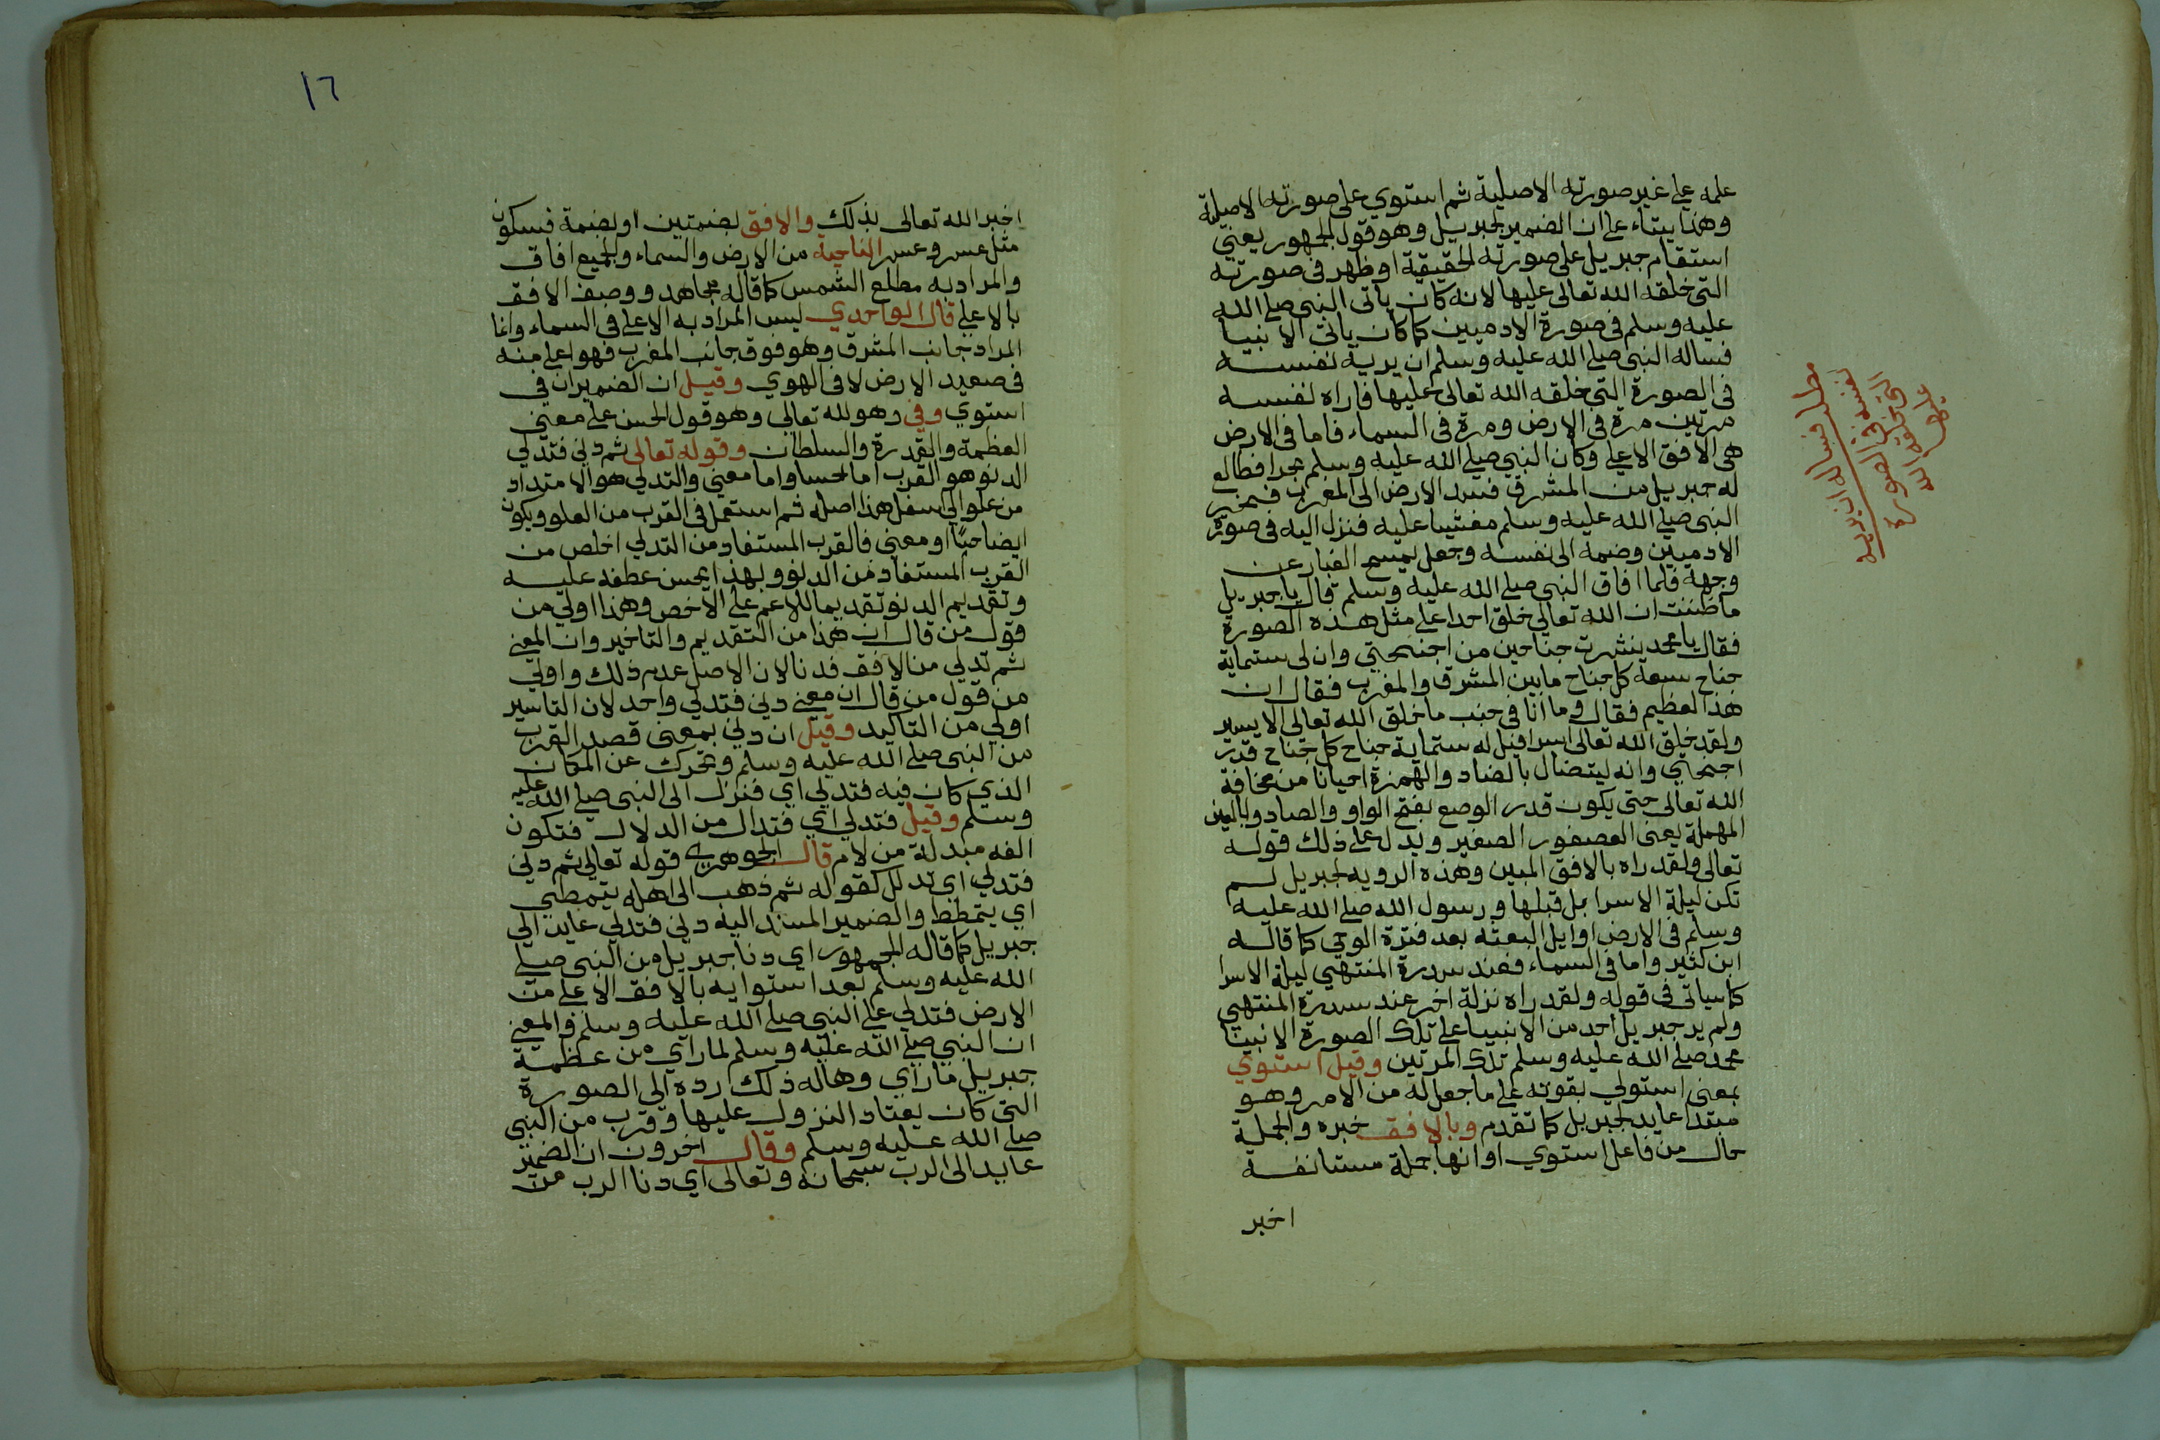 علمه علي غير صورته الاصلية ثم استوي على صورته الاصلية
وهذا بناء علي ان الضمير لجبريل وهو قول الجمهور يعني
استقام جبريل على صورته الحقيقة او ظهر في صورته
التي خلقه الله تعالى عليها لانه كان ياتي النبي صلي الله
عليه وسلم في صورة الادميين كما كان ياتي الانبيا
فساله النبي صلي الله عليه وسلم ان يريه نفسه
في الصورة التي خلقه الله تعالى عليها فاراه نفسه
مرتين مرة في الارض ومرة في السماء فاما في الارض
هي الافق الاعلي وكان النبي صلي الله عليه وسلم بحرا فطالع
له جبريل من المشرق فسد الارض الى المغرب فخر
النبي صلي الله عليه وسلم مغشيا عليه فنزل اليه في صورة
الادميين وضمه الى نفسه وجعل يمسح الغبار عن
وجهه فلما افاق النبي صلي الله عليه وسلم قال يا جبريل
ما ظننت ان الله تعالي خلق احدا علي مثل هذه الصورة
فقال يا محمد نشرت جناحين من اجنحتي وان لي ستماية
جناح سعة كل جناح ما بين المشرق والمغرب فقال ان
هذا لعظيم فقال وما انا في جنب ما خلق الله تعالى الا يسير
ولقد خلق الله تعالى اسرافيل له ستماية جناح كل جناح قدر
اجنحتي وانه ليتضال بالضاد والهمزة احيانا من مخافة
الله تعالى حتى يكون قدر الوصع بفتح الواو والصاد وبالعين
المهملة يعني العصفور الصغير ويدل علي ذلك قوله
تعالى ولقد راه بالافق المبين وهذه الرويه لجبريل لم
تكن ليلة الاسرا بل قبلها ورسول الله صلي الله عليه
وسلم في الارض اوايل البعثه بعد فترة الوحي كما قاله
ابن كثير واما في السماء فعند سدرة المنتهي ليلة الاسرا
كما سياتي في قوله ولقد راه نزلة اخر عند سدرة المنتهي
ولم ير جبريل احد من الانبيا علي تلك الصورة الا نبينا
محمد صلي الله عليه وسلم تلك المرتين وقيل استوي
بمعني استولي بقوته علي ما جعل له من الامر وهو
مبتدا عايد لجبريل كما تقدم وبالافق خبره والجملة
حال من فاعل استوي او انها جملة مستانفه
اخبر
مطلب فساله ان يريه
نفسه في الصورة
التي خلقه الله
عليها
١٦
اخبر الله تعالى بذلك والافق بضمتين او بضمة فسكون
مثل عسر وعسر الناحية من الارض والسماء والجميع افاق
والمراد به مطلع الشمس كما قاله مجاهد ووصف الافق
بالاعلي قال الواحدي ليس المراد به الاعلي في السماء وانما
المراد جانب المشرق وهو فوق جانب المغرب فهو اعلي منه
في صعيد الارض لا في الهوي وقيل ان الضميران في
استوي وفي وهو لله تعالي وهو قول الحسن علي معني
العظمة والقدرة والسلطان وقوله تعالى ثم دني فتدلي
الدنو هو القرب اما حسا واما معني والتدلي هو الامتداد
من علو الي اسفل هذا اصله ثم استعمل في القرب من العلو ويكون
ايضا حسًا او معني فالقرب المستفاد من التدلي اخلص من
القرب المستفاد من الدنو ولهذا يحسن عطفه عليه
وتقديم الدنو تقديما للاعم علي الاخص وهذا اولي من
قول من قال ان هذا من التقديم والتاخير وان المعني
ثم تدلي من الافق فدنا لان الاصل عدم ذلك واولي
من قول من قال ان معني دني فتدلي واحد لان التاسير
اولي من التاكيد وقيل ان دني بمعني قصد القرب
من النبي صلي الله عليه وسلم وتحرك عن المكان
الذي كان فيه فتدلي اي فنزل الى النبي صلي الله عليه
وسلم وقيل فتدلي اي فتدال من الدلال فتكون
الفه مبدلة من لام قال الجوهري قوله تعالي ثم دني
فتدلي اي تدلل كقوله ثم ذهب الى اهله يتمطي
اي يتمطط والضمير المسند اليه دني فتدلي عايد الى
جبريل كما قاله الجمهور اي دنا جبريل من النبي صلي
الله عليه وسلم بعد استوايه بالافق الاعلي من
الارض فتدلي علي النبي صلي الله عليه وسلم والمعني
ان النبي صلي الله عليه وسلم لما راي من عظمة
جبريل ما راي وهاله ذلك رده الى الصورة
التي كان يعتاد النزول عليها وقرب من النبي
صلي الله عليه وسلم وقال اخرون ان الضمير
عايد الى الرب سبحانه وتعالى اي دنا الرب من